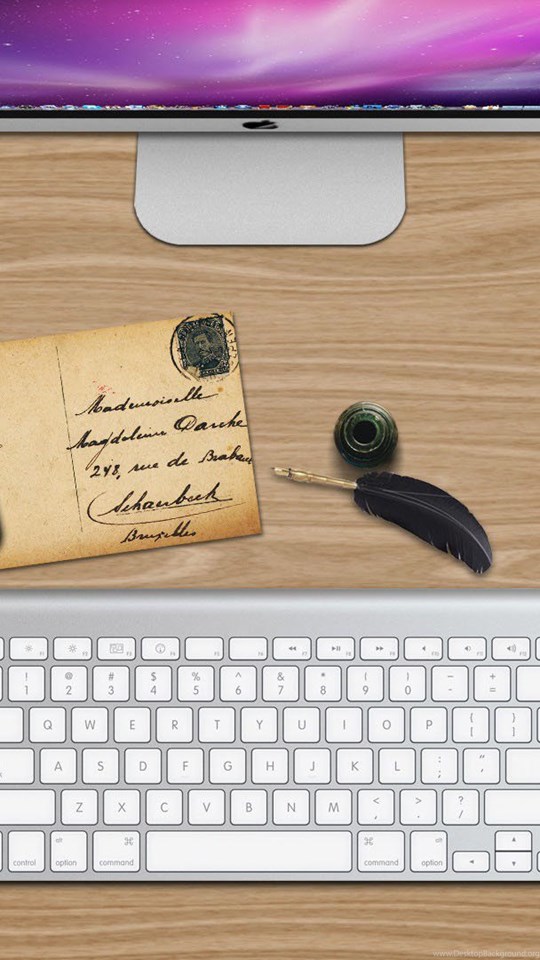 Mademoiselle
Magdeleine Darche
248, rue de Braban
Schaerbeek
Bruxelles
F1 F2 F3 F4 F5 F6 F7 F8 F9 F10 F11 F12
! @ # $ % ^ & * ( ) _ +
1 2 3 4 5 6 7 8 9 0 - =
Q W E R T Y U I O P { [ } ]
A S D F G H J K L : ; " '
Z X C V B N M < , > . ? /
control option command command option
www.DesktopBackground.org